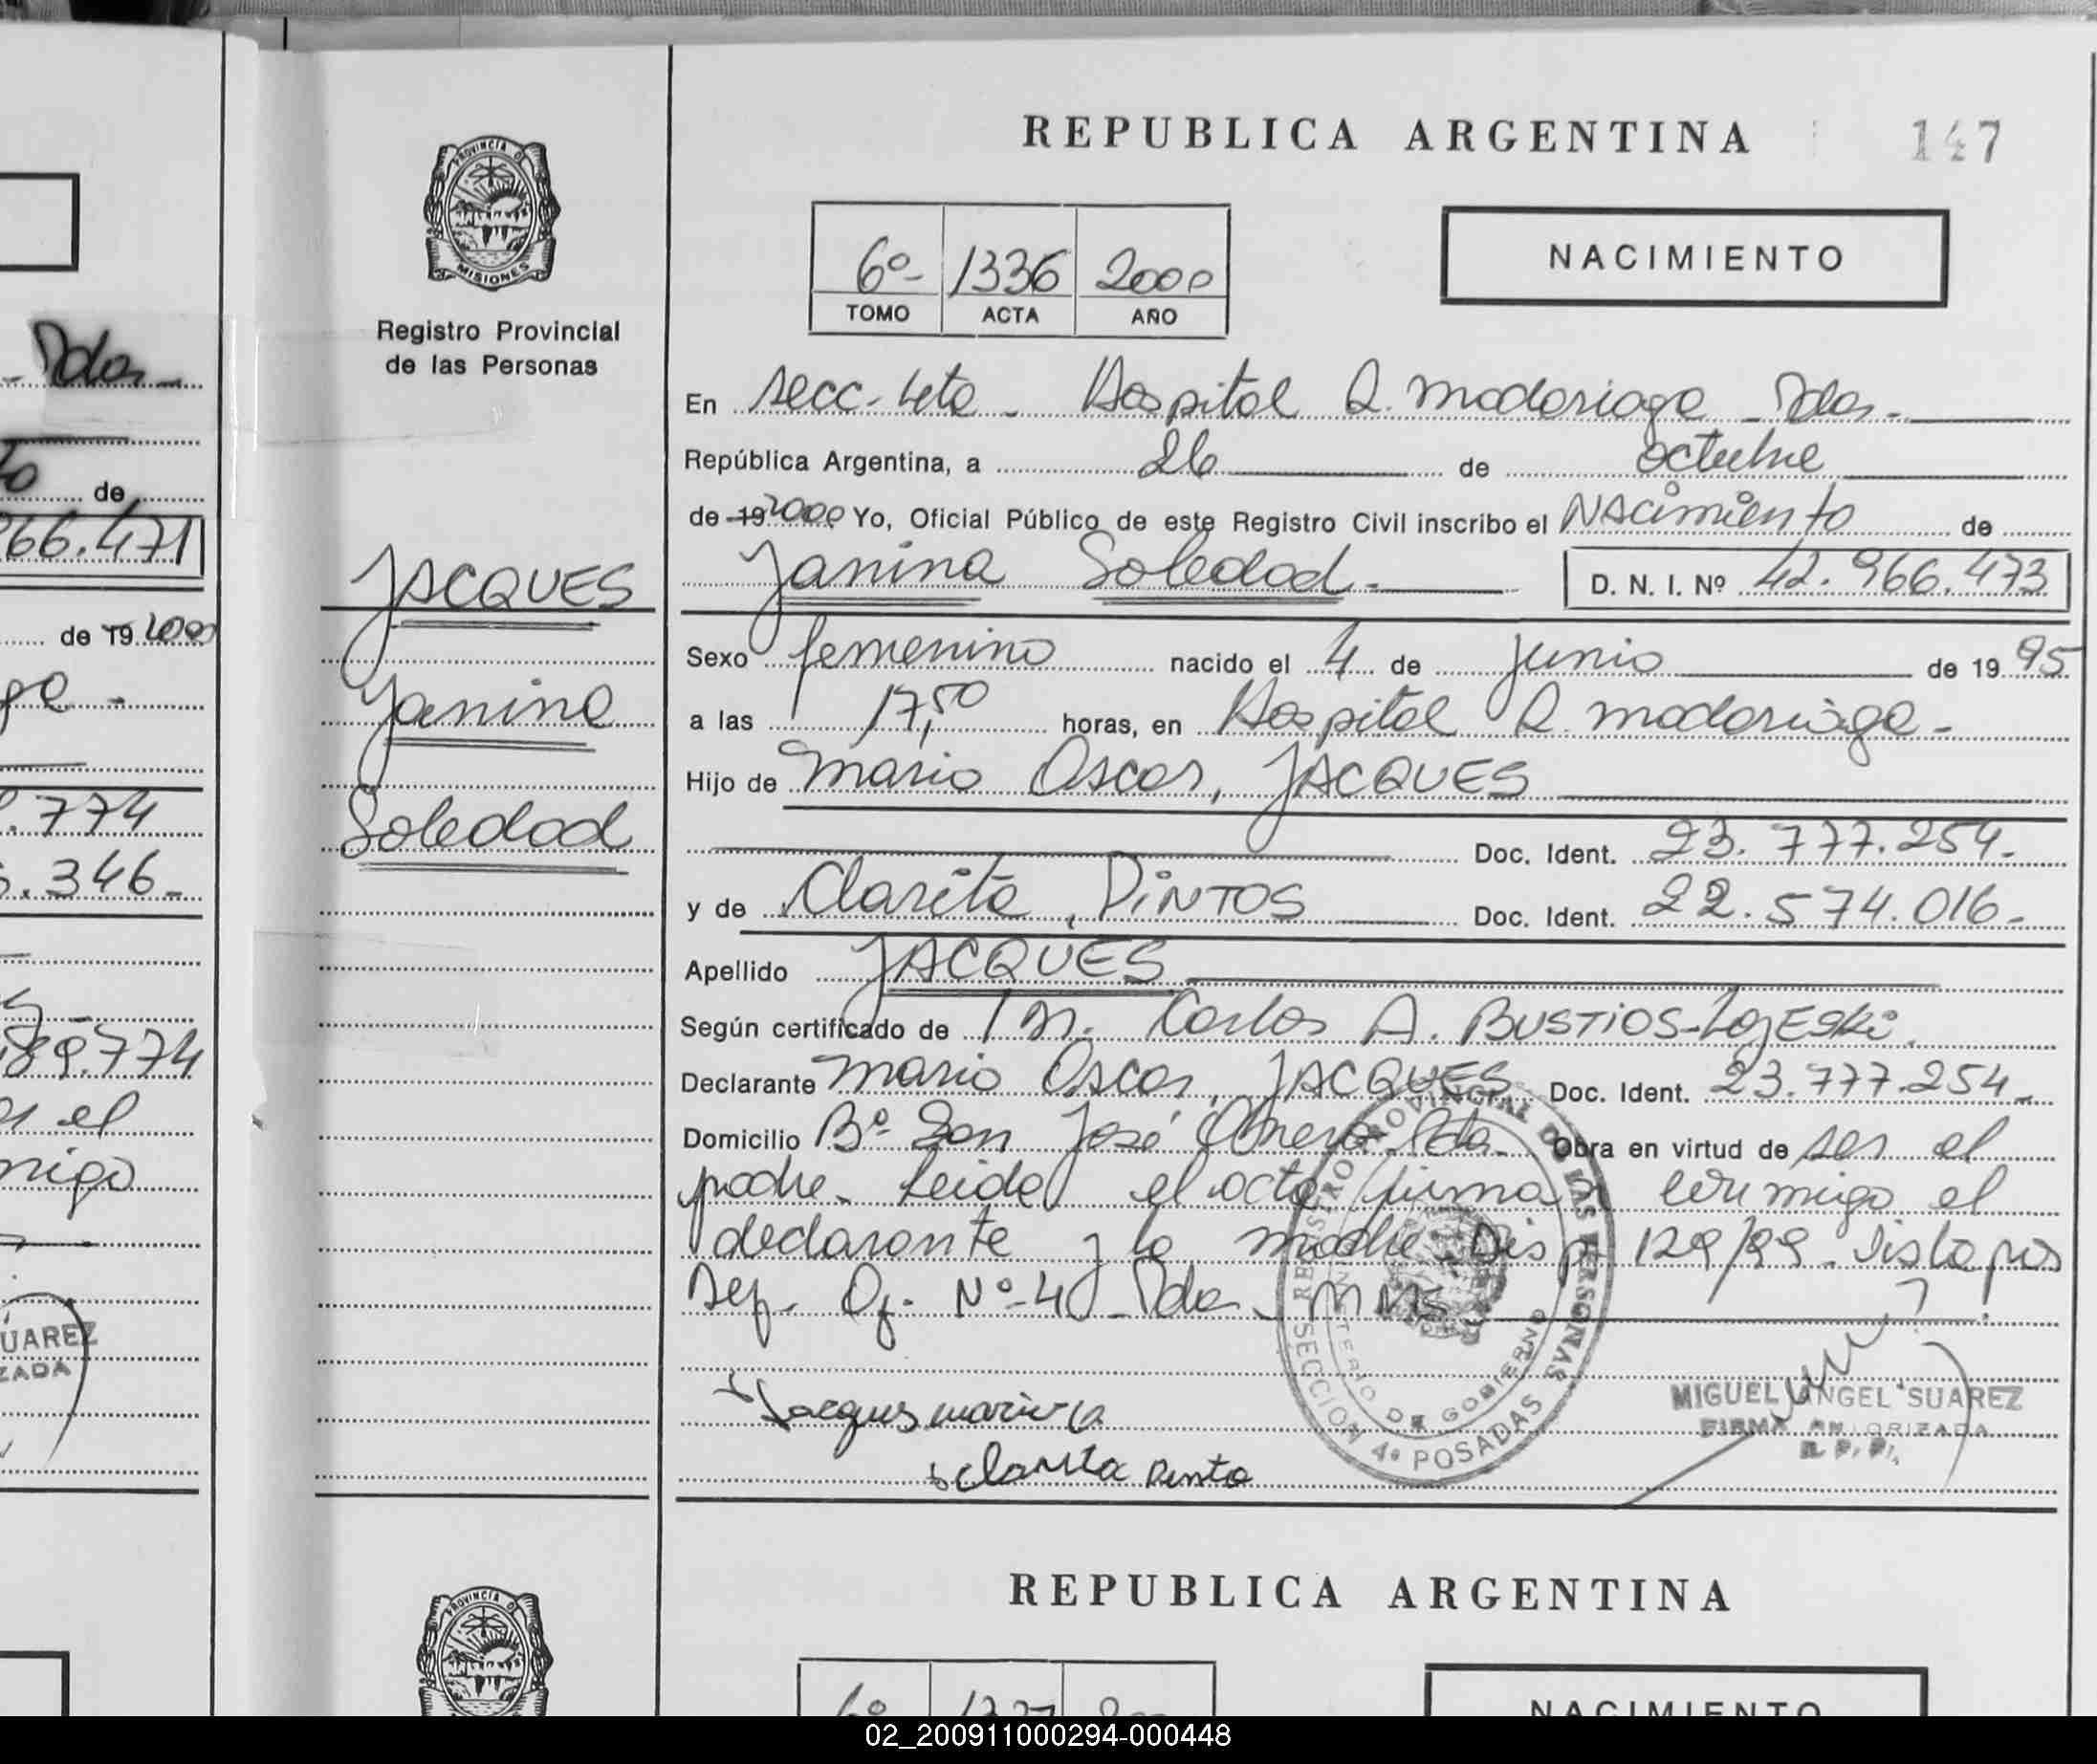 REPUBLICA ARGENTINA
147
PROVINCIA DE
MISIONES
Registro Provincial
de las Personas
6º- 1336 2000
TOMO ACTA AÑO
NACIMIENTO
En secc. 4ta - Hospital R. Madariaga - Pdas.-
República Argentina, a 26 de octubre
de 19 2000 Yo, Oficial Público de este Registro Civil inscribo el Nacimiento de
Janina Soledad.- D. N. I. Nº 42.966.473
Sexo femenino nacido el 4 de junio de 19 95
a las 17,50 horas, en Hospital R. Madariaga -
Hijo de Mario Oscar, JACQUES
Doc. Ident. 23.777.254.-
y de Clarita, PiNTOS Doc. Ident. 22.574.016.-
Apellido JACQUES
Según certificado de Dr. Carlos A. BUSTiOS-
Declarante Mario Oscar, JACQUES Doc. Ident. 23.777.254.-
Domicilio Bº San José Obrero - Pda. Obra en virtud de ser el
padre. Leida el acta firman conmigo el
declarante y la madre. Disp. 129/99.
Of. Nº 4
JACQUES
Janina
Soledad
REGISTRO PROVINCIAL DE LAS PERSONAS
MINISTERIO DE GOBIERNO
SECCION 4ª POSADAS
Clarita Pinto
MIGUEL ANGEL SUAREZ
FIRMA AUTORIZADA
R. P. P.
Pdas.-
de
66.471
de 19 2000
.774
.346.-
89.774
el
migo
UAREZ
ZADA
REPUBLICA ARGENTINA
PROVINCIA DE
6º 1337
NACIMIENTO
02_200911000294-000448